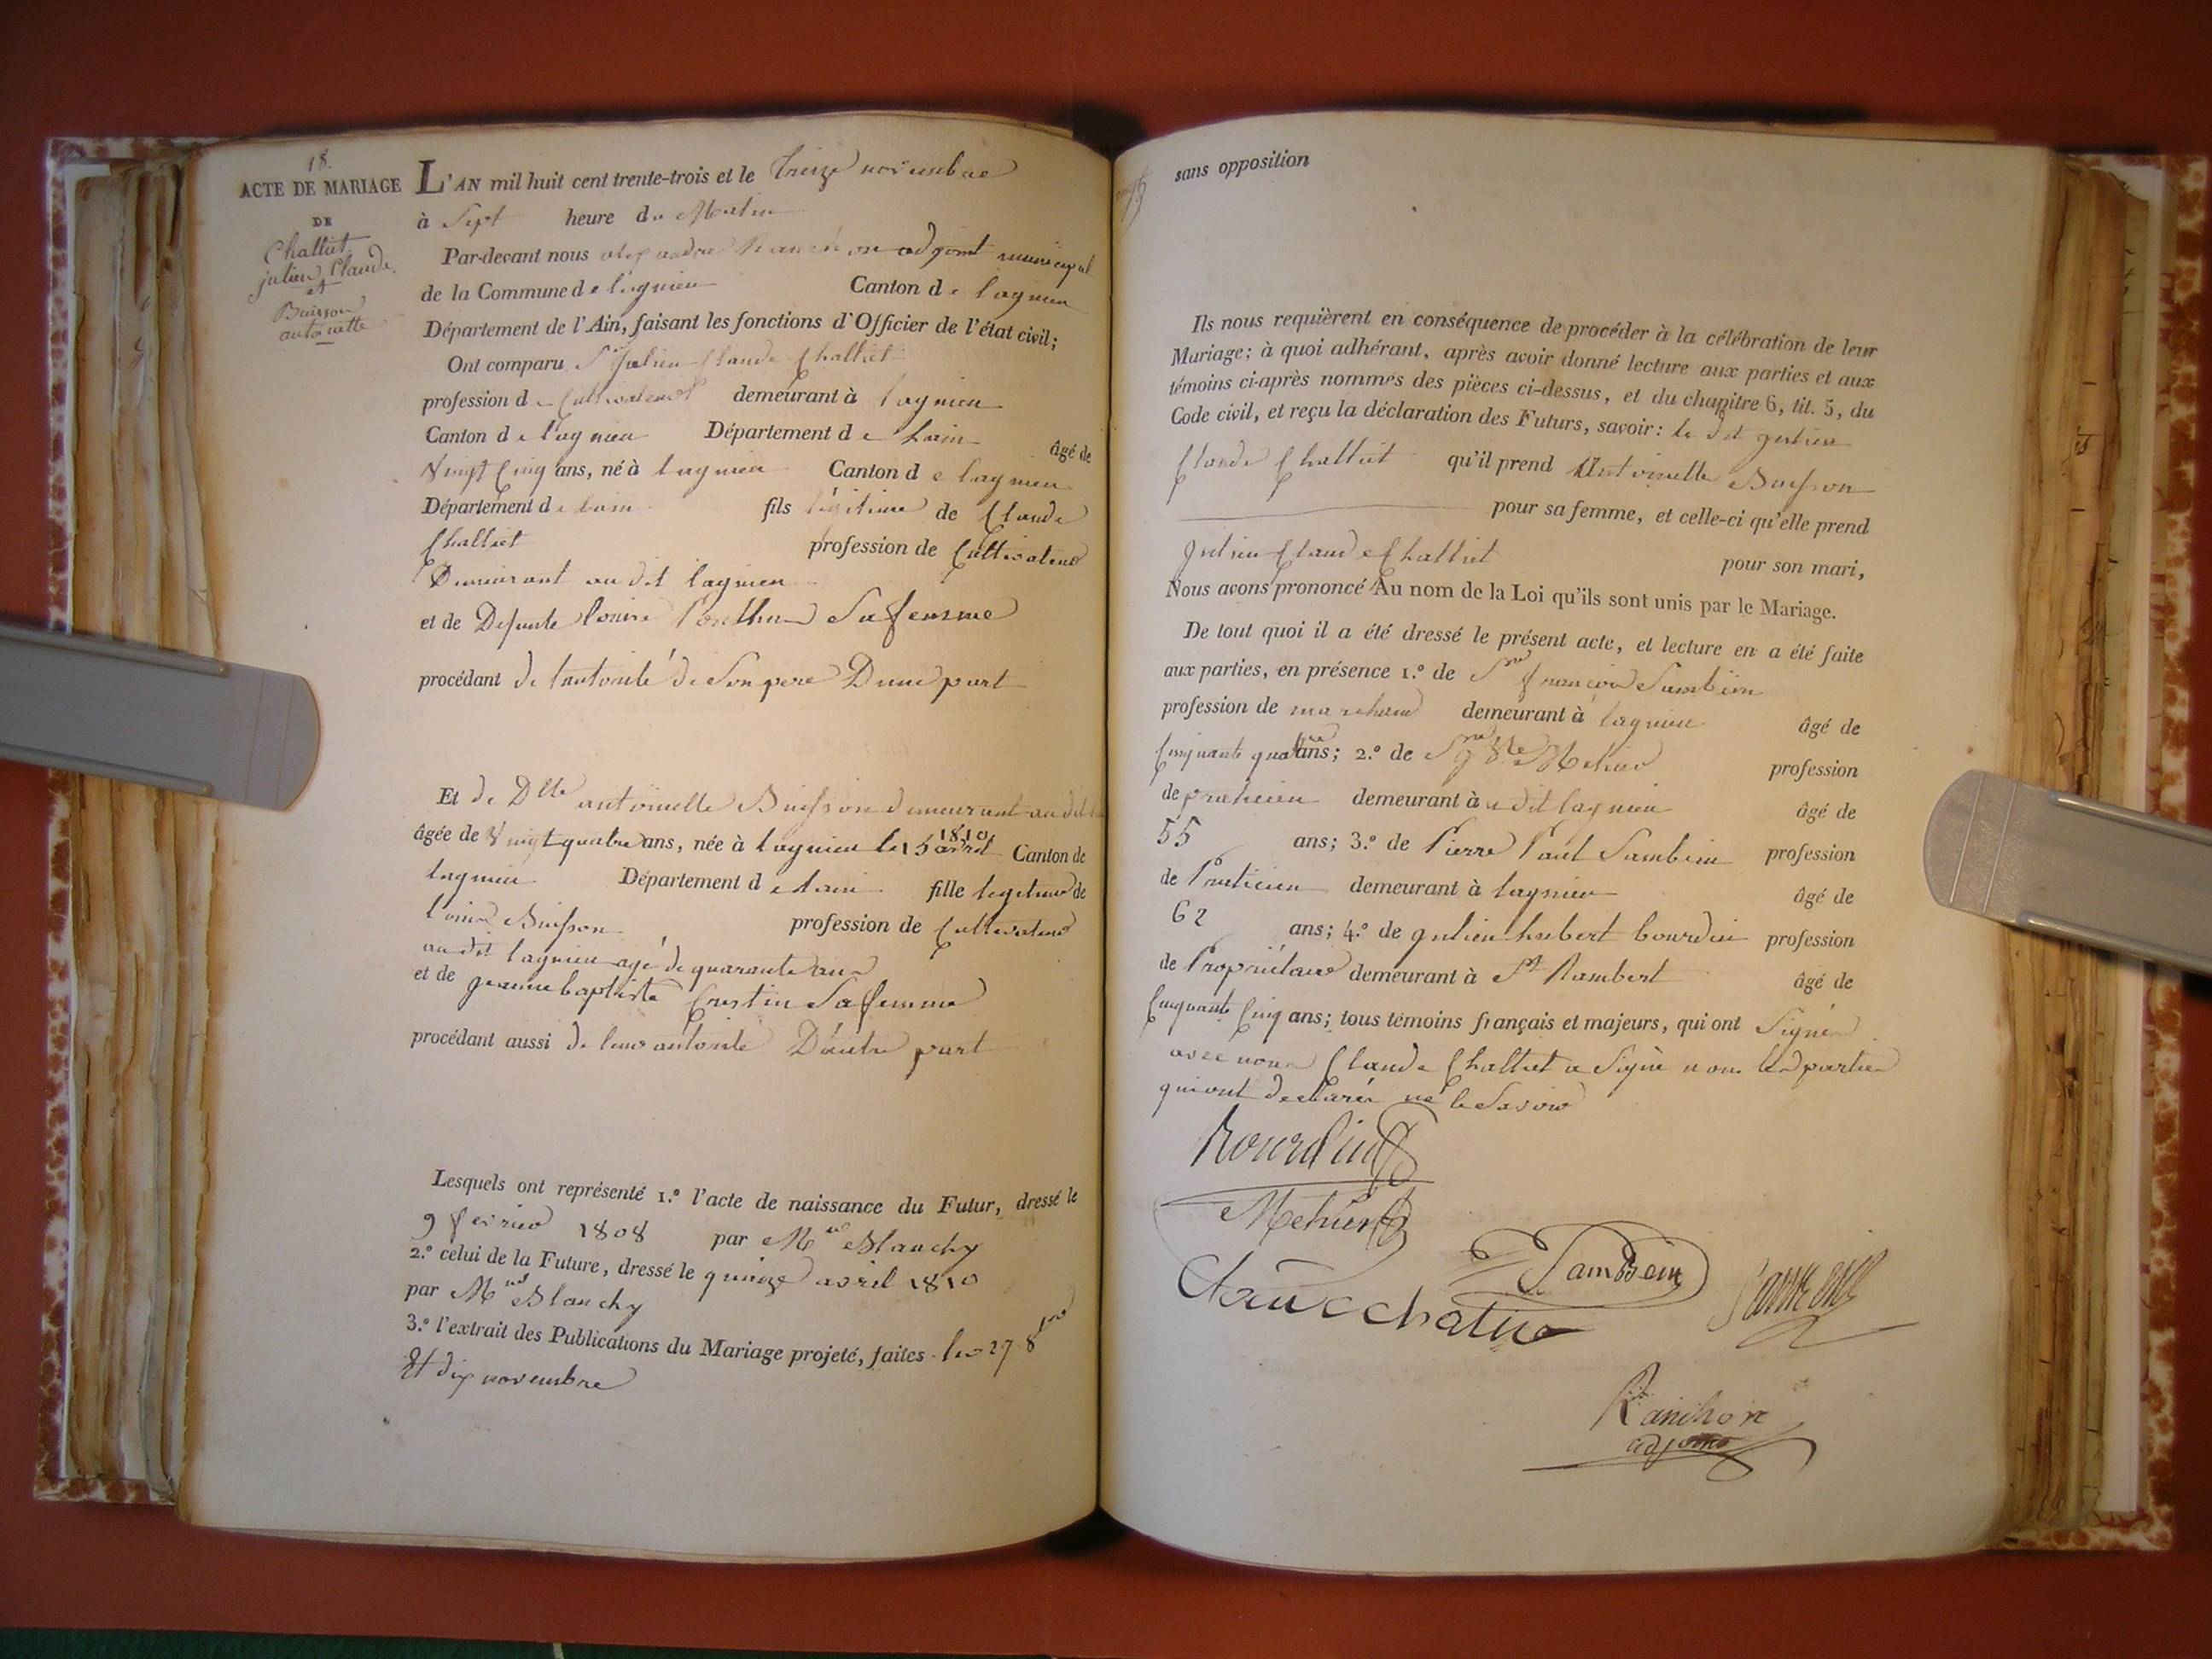 18.
ACTE DE MARIAGE
DE
Challiet
julien Claude
et
Buisson
antoinette
L'AN mil huit cent trente-trois et le treize novembre
à Sept heure du Matin
Par-devant nous alexandre Ranchon adjoint municipal
de la Commune de lagnieu Canton de lagnieu
Département de l'Ain, faisant les fonctions d'Officier de l'état civil;
Ont comparu Sr Julien Claude Challiet
profession de Cultivateur demeurant à lagnieu
Canton de lagnieu Département de lain âgé de
Vingt Cinq ans, né à lagnieu Canton de lagnieu
Département de lain fils légitime de Claude
Challiet profession de Cultivateur
Demeurant au dit lagnieu
et de Defunte louise Ponthus Sa femme
procédant de lautorité de Son pere Dune part
Et de Dlle antoinette Buisson demeurant au dit
âgée de Vingt quatre ans, née à lagnieu le 15 avril 1810 Canton de
lagnieu Département de lain fille legitime de
louis Buisson profession de Cultivateur
au dit lagnieu agé de quarante ans
et de jeanne baptiste Crestin Sa femme
procédant aussi de leur autorité Dautre part
Lesquels ont représenté 1.º l'acte de naissance du Futur, dressé le
9 fevrier 1808 par Mr Blanchy
2.º celui de la Future, dressé le quinze avril 1810
par Mr Blanchy
3.º l'extrait des Publications du Mariage projeté, faites les 27 8bre
Et dix novembre
sans opposition
Ils nous requièrent en conséquence de procéder à la célébration de leur
Mariage; à quoi adhérant, après avoir donné lecture aux parties et aux
témoins ci-après nommés des pièces ci-dessus, et du chapitre 6, tit. 5, du
Code civil, et reçu la déclaration des Futurs, savoir: le dit julien
Claude Challiet qu'il prend Antoinette Buisson
pour sa femme, et celle-ci qu'elle prend
Julien Claude Challiet pour son mari,
Nous avons prononcé Au nom de la Loi qu'ils sont unis par le Mariage.
De tout quoi il a été dressé le présent acte, et lecture en a été faite
aux parties, en présence 1.º de Sr françois Sambein
profession de marchand demeurant à lagnieu âgé de
Cinquante quatre ans; 2.º de Sr Mehier profession
de praticien demeurant à u dit lagnieu âgé de
55 ans; 3.º de Pierre Paul Sambein profession
de Praticien demeurant à lagnieu âgé de
62 ans; 4.º de julien hubert bourdin profession
de Propriétaire demeurant à St Rambert âgé de
Cinquante Cinq ans; tous témoins français et majeurs, qui ont Signé
avec nous Claude Challiet a Signé non les parties
qui ont declarés ne le Savoir
Bourdin
Mehier
Sambein
Sambein
Claude chaliet
Ranchon
adjoint